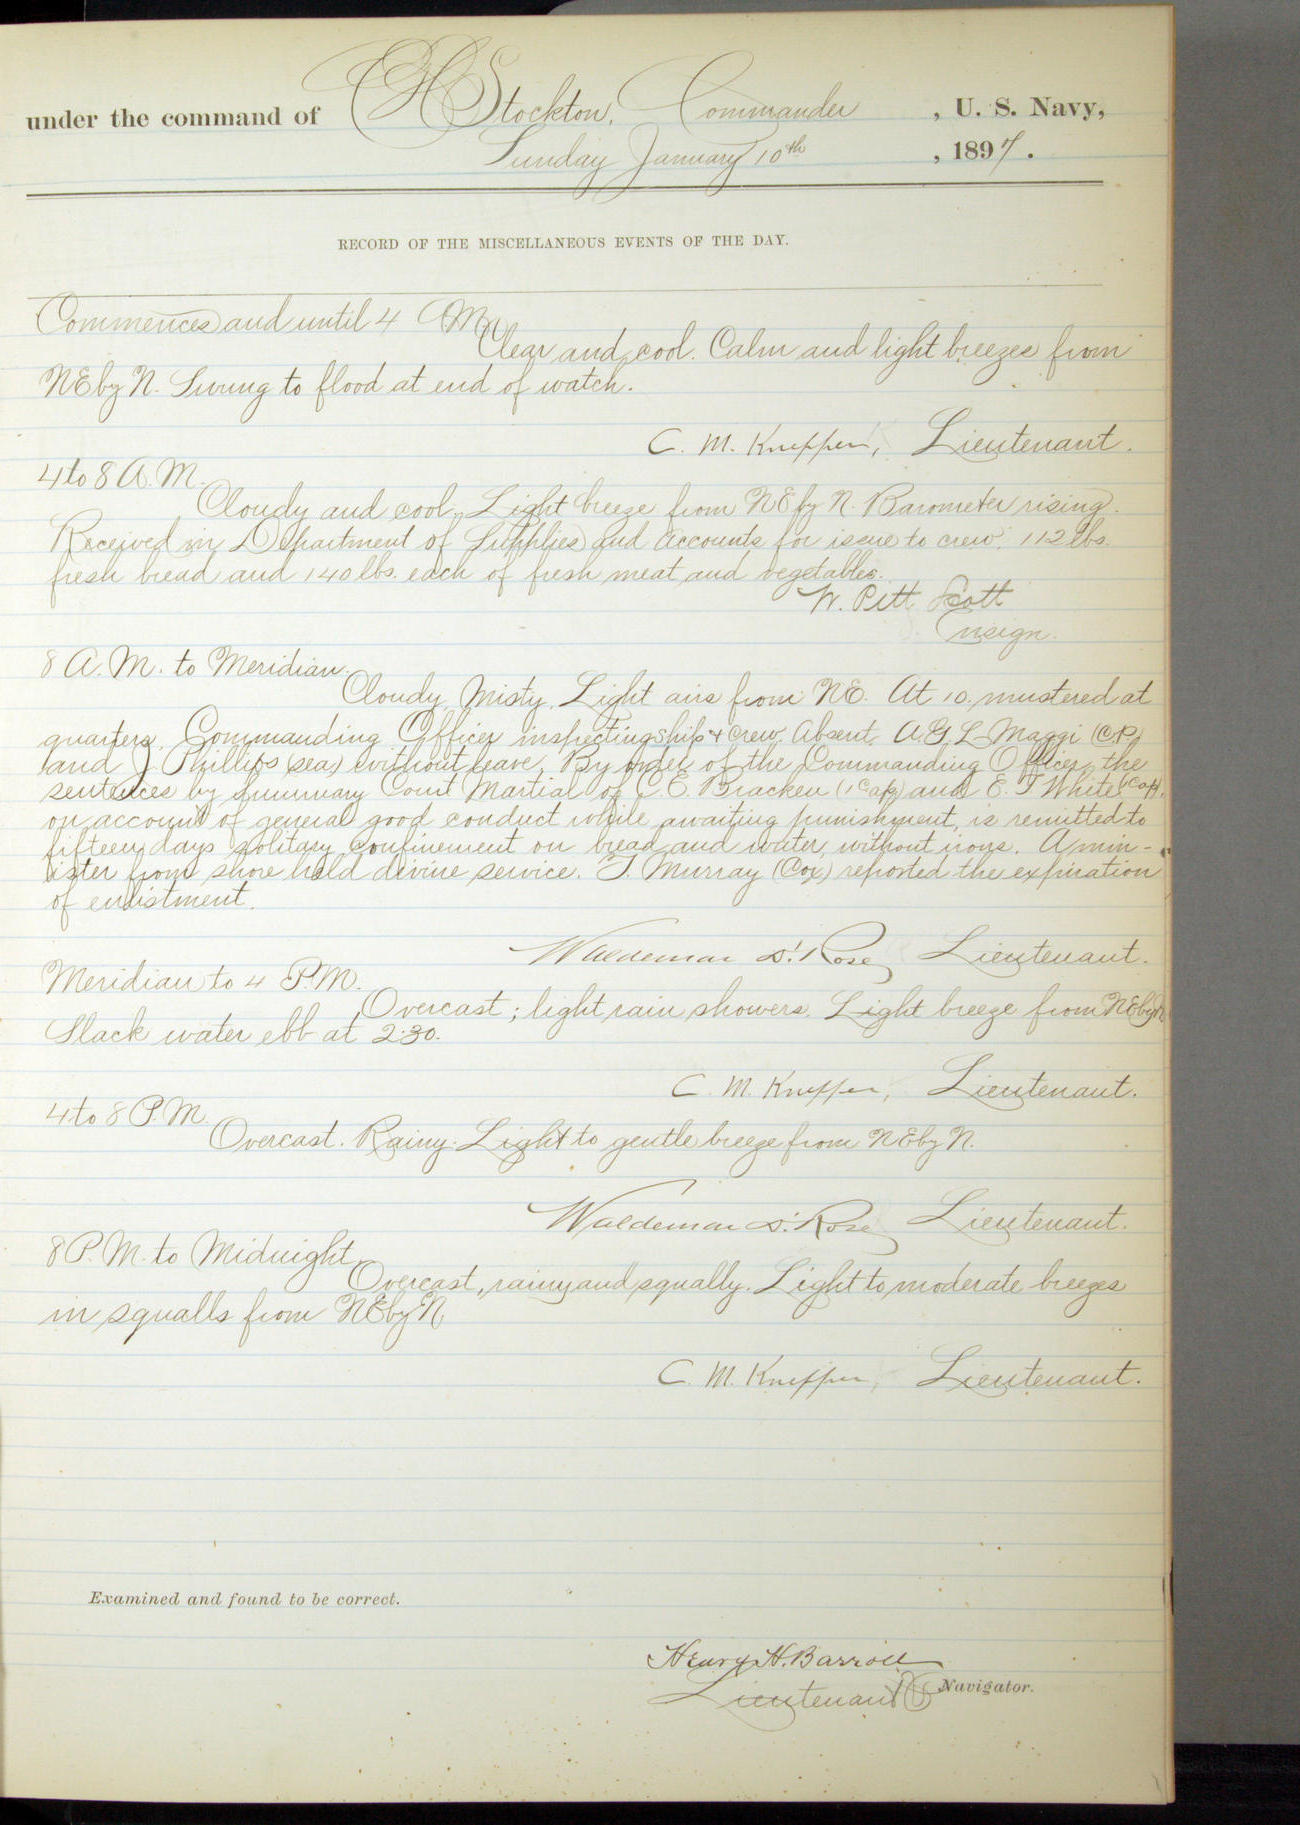 under the command of C H Stockton, Commander, U. S. Navy,
Sunday January 10th, 1897.
RECORD OF THE MISCELLANEOUS EVENTS OF THE DAY.
Commences and until 4 AM
Clear and cool. Calm and light breezes from
NE by N. Swung to flood at end of watch.
C. M. Knepper, Lieutenant.
4 to 8 A.M.
Cloudy and cool. Light breeze from NE by N. Barometer rising.
Received in Department of Supplies and Accounts for issue to crew: 112 lbs.
fresh bread and 140 lbs. each of fresh meat and vegetables.
W. Pitt Scott
Ensign.
8 A.M. to Meridian.
Cloudy, Misty, Light airs from NE. At 10, mustered at
quarters, Commanding Officer inspecting ship & crew. Absent, A.G.L. Maggi (C.P.)
and J. Phillips (sea) without leave. By order of the Commanding Officer, the
sentences by Summary Court Martial of C. E. Bracken (1 Cap) and E. T White
on account of general good conduct while awaiting punishment, is remitted to
fifteen days solitary confinement on bread and water, without irons. A min-
ister from shore held divine service. T. Murray (Cox) reported the expiration
of enlistment.
Waldemar D'. Rose Lieutenant.
Meridian to 4 P.M.
Overcast; light rain showers. Light breeze from NE by N
Slack water ebb at 2:30.
C. M. Knepper, Lieutenant.
4 to 8 P.M.
Overcast. Rainy. Light to gentle breeze from NE by N.
Waldemar D'. Rose Lieutenant.
8 P.M. to Midnight.
Overcast, rainy and squally. Light to moderate breezes
in squalls from NE by N
C. M. Knepper, Lieutenant.
Examined and found to be correct.
Henry H. Barroll
Lieutenant Navigator.